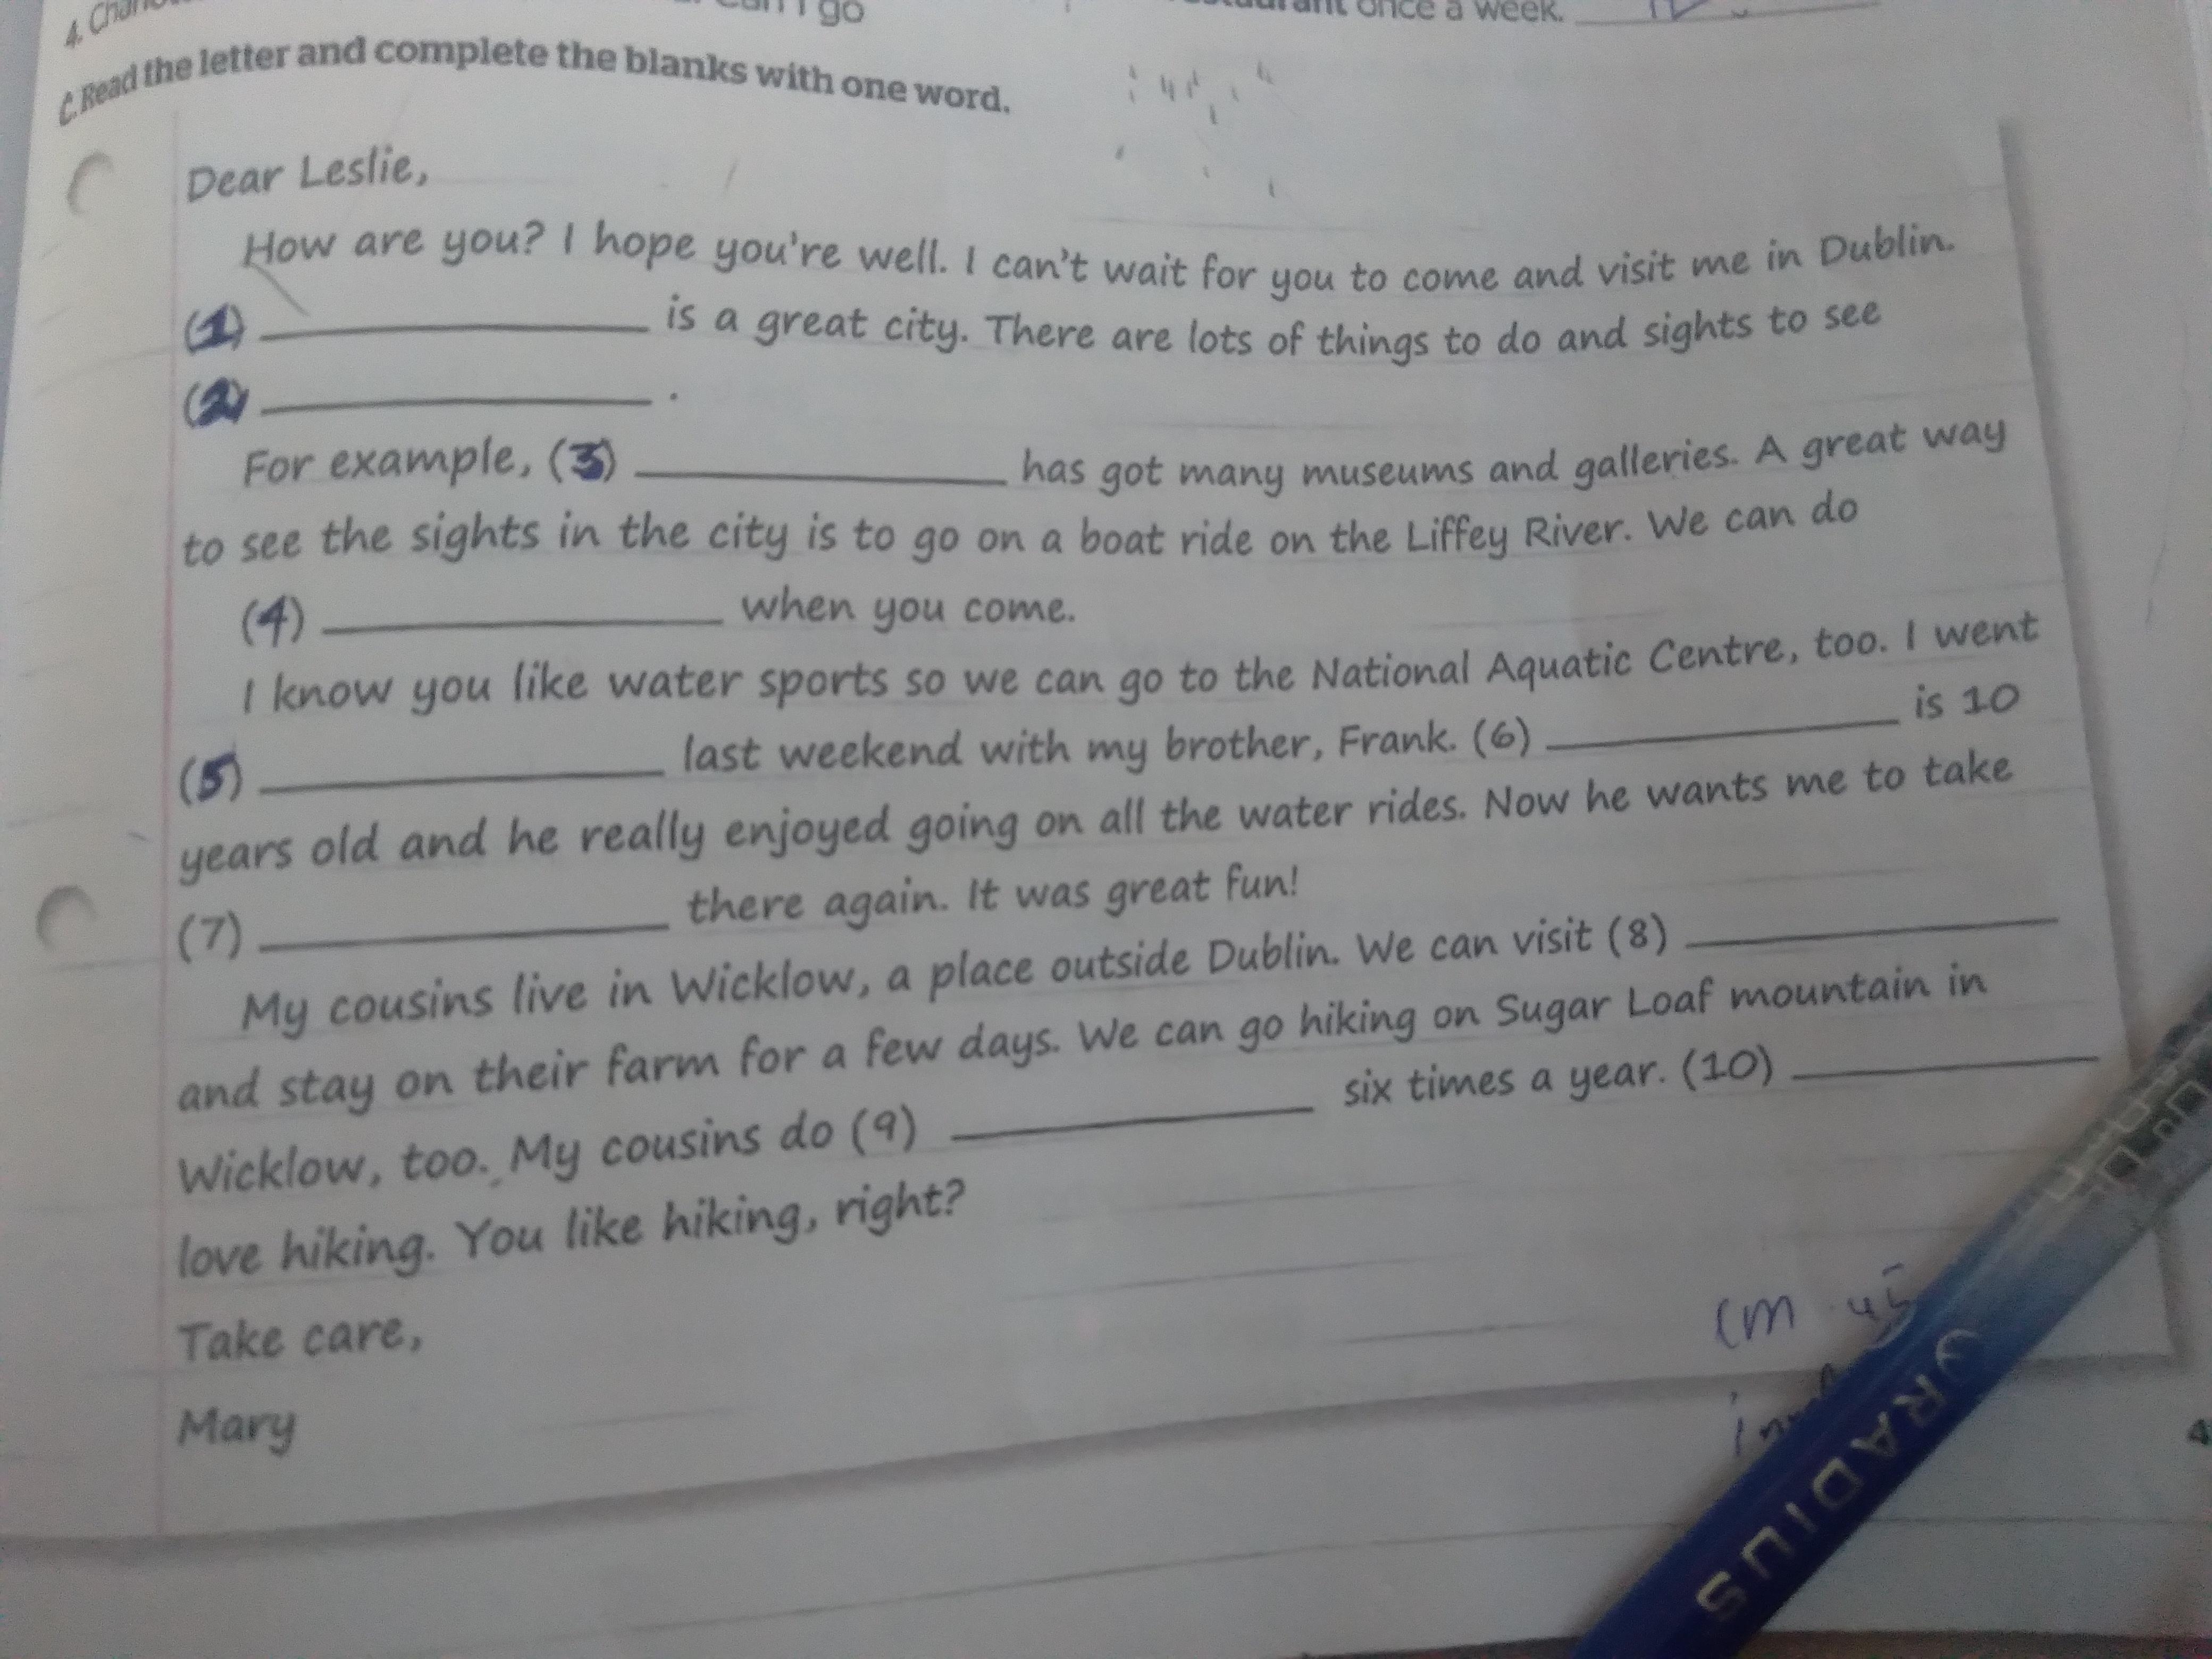 4.
go
once a week.
C. Read the letter and complete the blanks with one word.
Dear Leslie,
How are you? I hope you're well. I can't wait for you to come and visit me in Dublin.
(1) ____ is a great city. There are lots of things to do and sights to see
(2) ____ .
For example, (3) ____ has got many museums and galleries. A great way
to see the sights in the city is to go on a boat ride on the Liffey River. We can do
(4) ____ when you come.
I know you like water sports so we can go to the National Aquatic Centre, too. I went
(5) ____ last weekend with my brother, Frank. (6) ____ is 10
years old and he really enjoyed going on all the water rides. Now he wants me to take
(7) ____ there again. It was great fun!
My cousins live in Wicklow, a place outside Dublin. We can visit (8) ____
and stay on their farm for a few days. We can go hiking on Sugar Loaf mountain in
Wicklow, too. My cousins do (9) ____ six times a year. (10) ____
love hiking. You like hiking, right?
Take care,
Mary
RADIUS